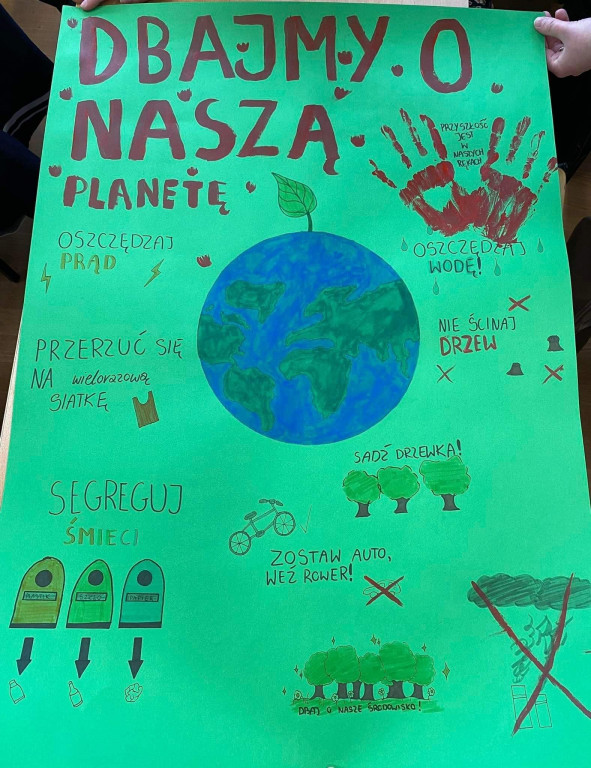 DBAJMY O
NASZĄ
PLANETĘ
PRZYSZŁOŚĆ
JEST
W
NASZYCH
RĘKACH
OSZCZĘDZAJ
PRĄD
OSZCZĘDZAJ
WODĘ!
PRZERZUĆ SIĘ
NA wielorazową
SIATKĘ
NIE ŚCINAJ
DRZEW
SADŹ DRZEWKA!
SEGREGUJ
ŚMIECI
ZOSTAW AUTO,
WEŹ ROWER!
DBAJ O NASZE ŚRODOWISKO!